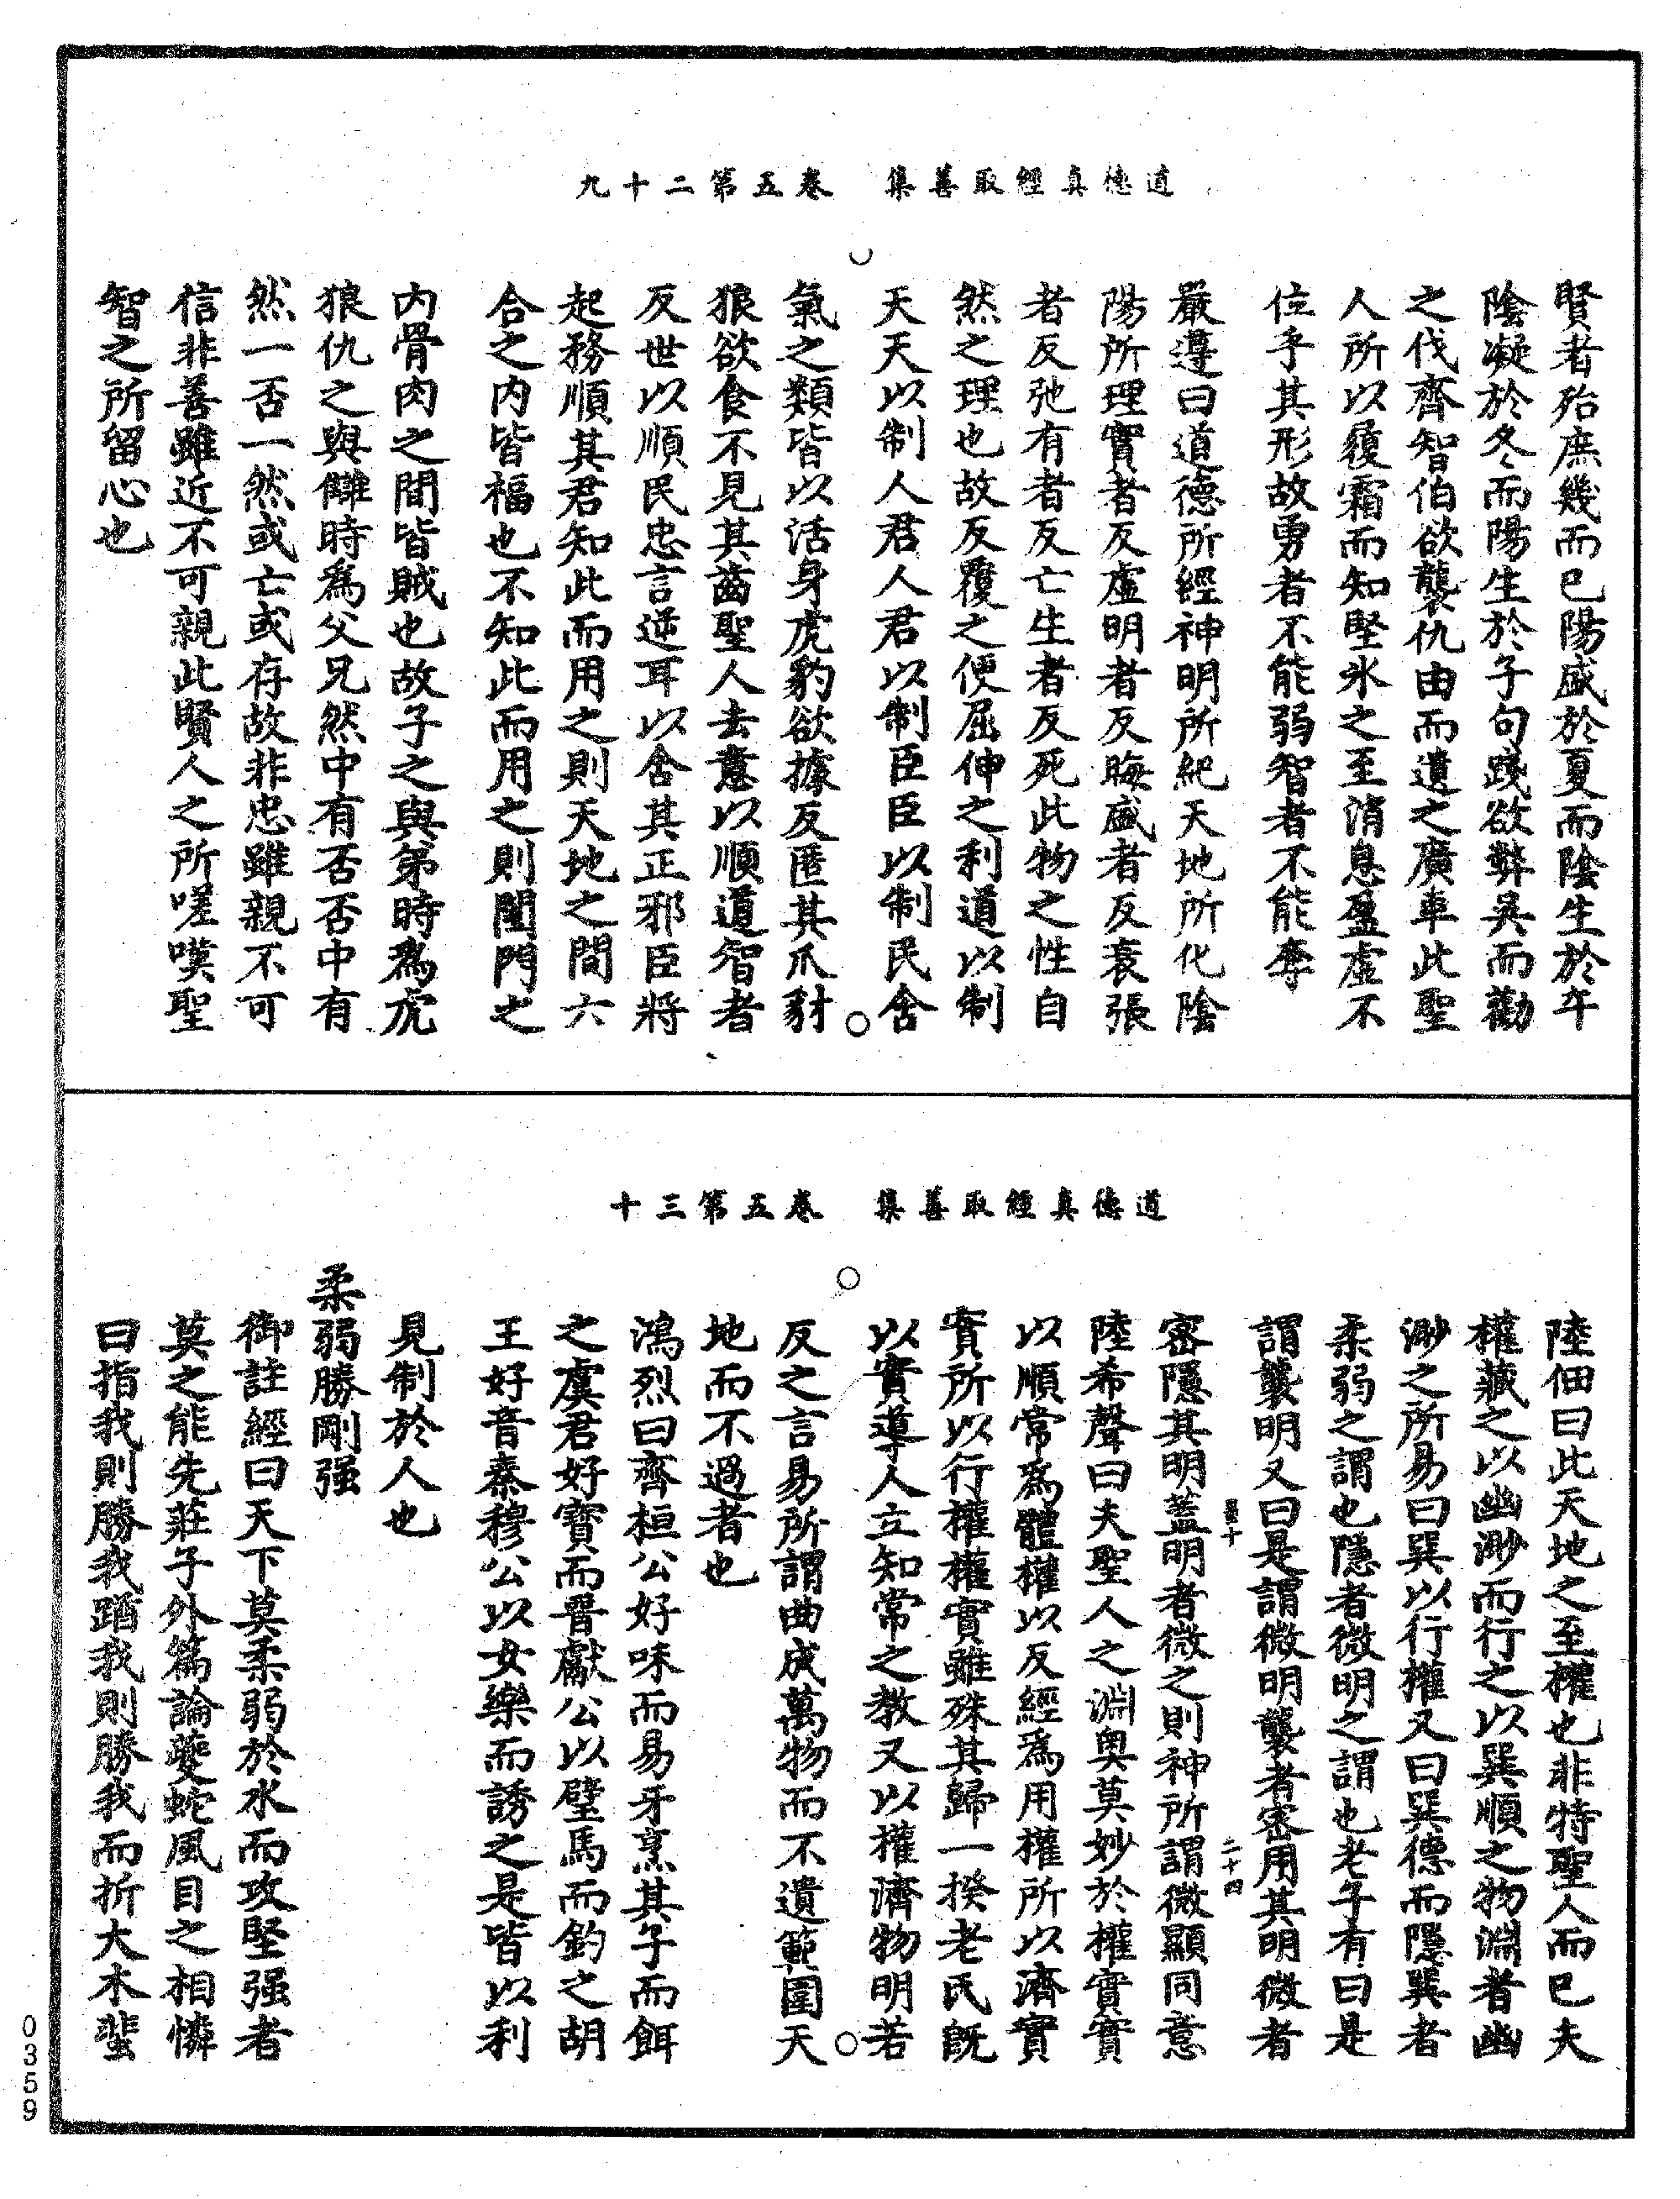 道德真經取善集　卷五第二十九
賢者殆庶幾而已陽盛於夏而陰生於午
陰凝於冬而陽生於子句踐欲弊吳而勸
之伐齊智伯欲襲仇由而遺之廣車此聖
人所以履霜而知堅氷之至消息盈虛不
位乎其形故勇者不能弱智者不能奪
嚴遵曰道德所經神明所紀天地所化陰
陽所理實者反虛明者反晦盛者反衰張
者反弛有者反亡生者反死此物之性自
然之理也故反覆之便屈伸之利道以制
天天以制人君人君以制臣臣以制民含
氣之類皆以活身虎豹欲據反匿其爪豺
狼欲食不見其齒聖人去意以順道智者
反世以順民忠言逆耳以含其正邪臣將
起務順其君知此而用之則天地之間六
合之內皆福也不知此而用之則閨門之
內骨肉之間皆賊也故子之與弟時為虎
狼仇之與讎時為父兄然中有否否中有
然一否一然或亡或存故非忠雖親不可
信非善雖近不可親此賢人之所嗟嘆聖
智之所留心也
道德真經取善集　卷五第三十
陸佃曰此天地之至權也非特聖人而已夫
權藏之以幽渺而行之以巽順之物淵者幽
渺之所易曰巽以行權又曰巽德而隱巽者
柔弱之謂也隱者微明之謂也老子有曰是
謂襲明又曰是謂微明襲者密用其明微者
二十四
密隱其明蓋明者微之則神所謂微顯同意
陸希聲曰夫聖人之淵奧莫妙於權實實
以順常為體權以反經為用權所以濟實
實所以行權權實雖殊其歸一揆老氏既
以實導人立知常之教又以權濟物明若
反之言易所謂曲成萬物而不遺範圍天
地而不過者也
鴻烈曰齊桓公好味而易牙烹其子而餌
之虞君好寶而晉獻公以璧馬而釣之胡
王好音秦穆公以女樂而誘之是皆以利
見制於人也
柔弱勝剛强
御註經曰天下莫柔弱於水而攻堅强者
莫之能先莊子外篇論夔蛇風目之相憐
曰指我則勝我蹈我則勝我而折大木蜚
0359